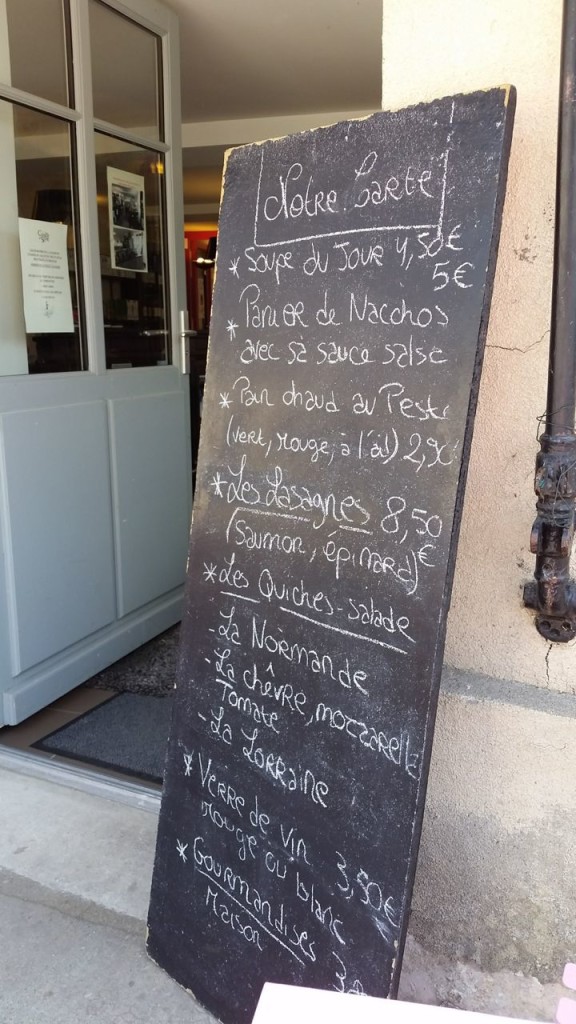 Notre Carte
* Soupe du Jour 4,50€
5€
* Panier de Nacchos
avec sa sauce salse
* Pain chaud au Pesto
(vert, rouge, à l'ail) 2,90
* Les Lasagnes 8,50
(Saumon, épinard) €
* Les Quiches-salade
- La Normande
- La chêvre, mozzarella
Tomate
- La Lorraine
* Verre de Vin
rouge ou blanc 3,50€
* Gourmandises
Maison